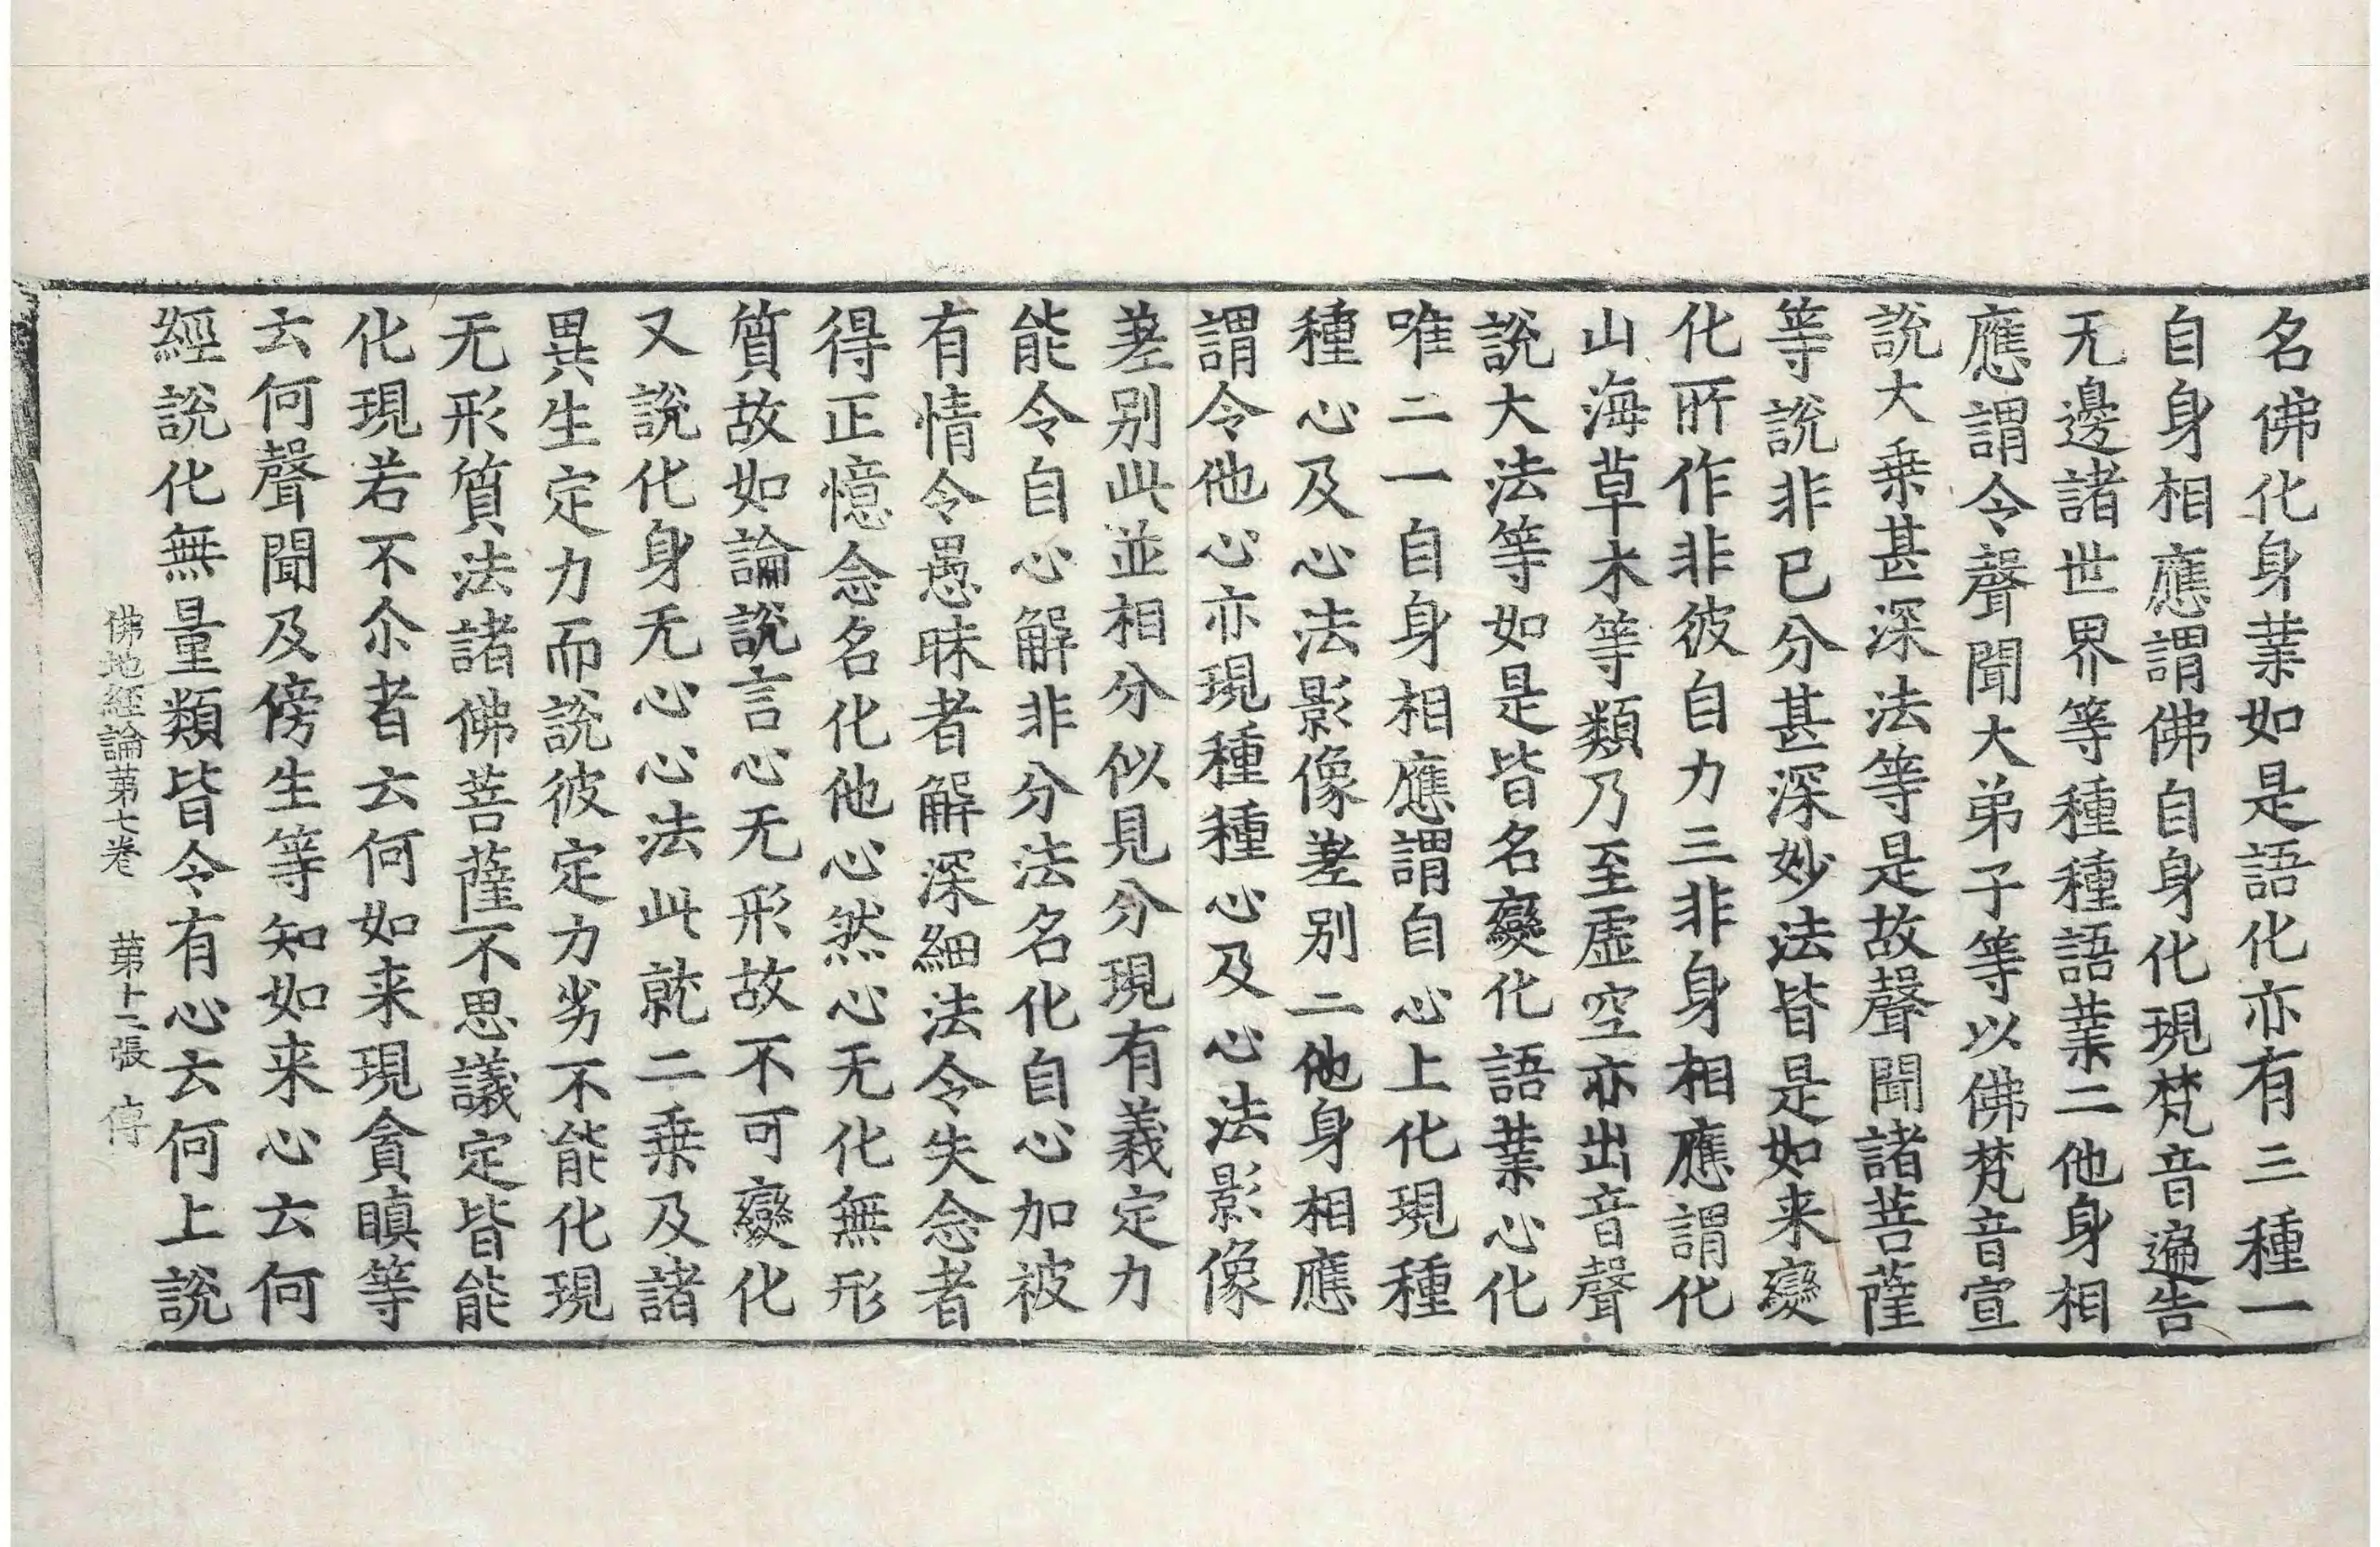 名佛化身業如是語化亦有三種一
自身相應謂佛自身化現梵音遍告
无邊諸世界等種種語業二他身相
應謂令聲聞大弟子等以佛梵音宣
說大乗甚深法等是故聲聞諸菩薩
等說非已分甚深妙法皆是如来變
化所作非彼自力三非身相應謂化
山海草木等類乃至虛空亦出音聲
說大法等如是皆名變化語業心化
唯二一自身相應謂自心上化現種
種心及心法影像差别二他身相應
謂令他心亦現種種心及心法影像
差别此並相分似見分現有義定力
能令自心解非分法名化自心加被
有情令愚昧者解深細法令失念者
得正憶念名化他心然心无化無形
質故如論說言心无形故不可變化
又說化身无心心法此就二乗及諸
異生定力而說彼定力劣不能化現
无形質法諸佛菩薩不思議定皆能
化現若不尒者云何如来現貪瞋等
云何聲聞及傍生等知如来心云何
經說化無量類皆令有心云何上說
佛地經論第七卷　第十二張　停